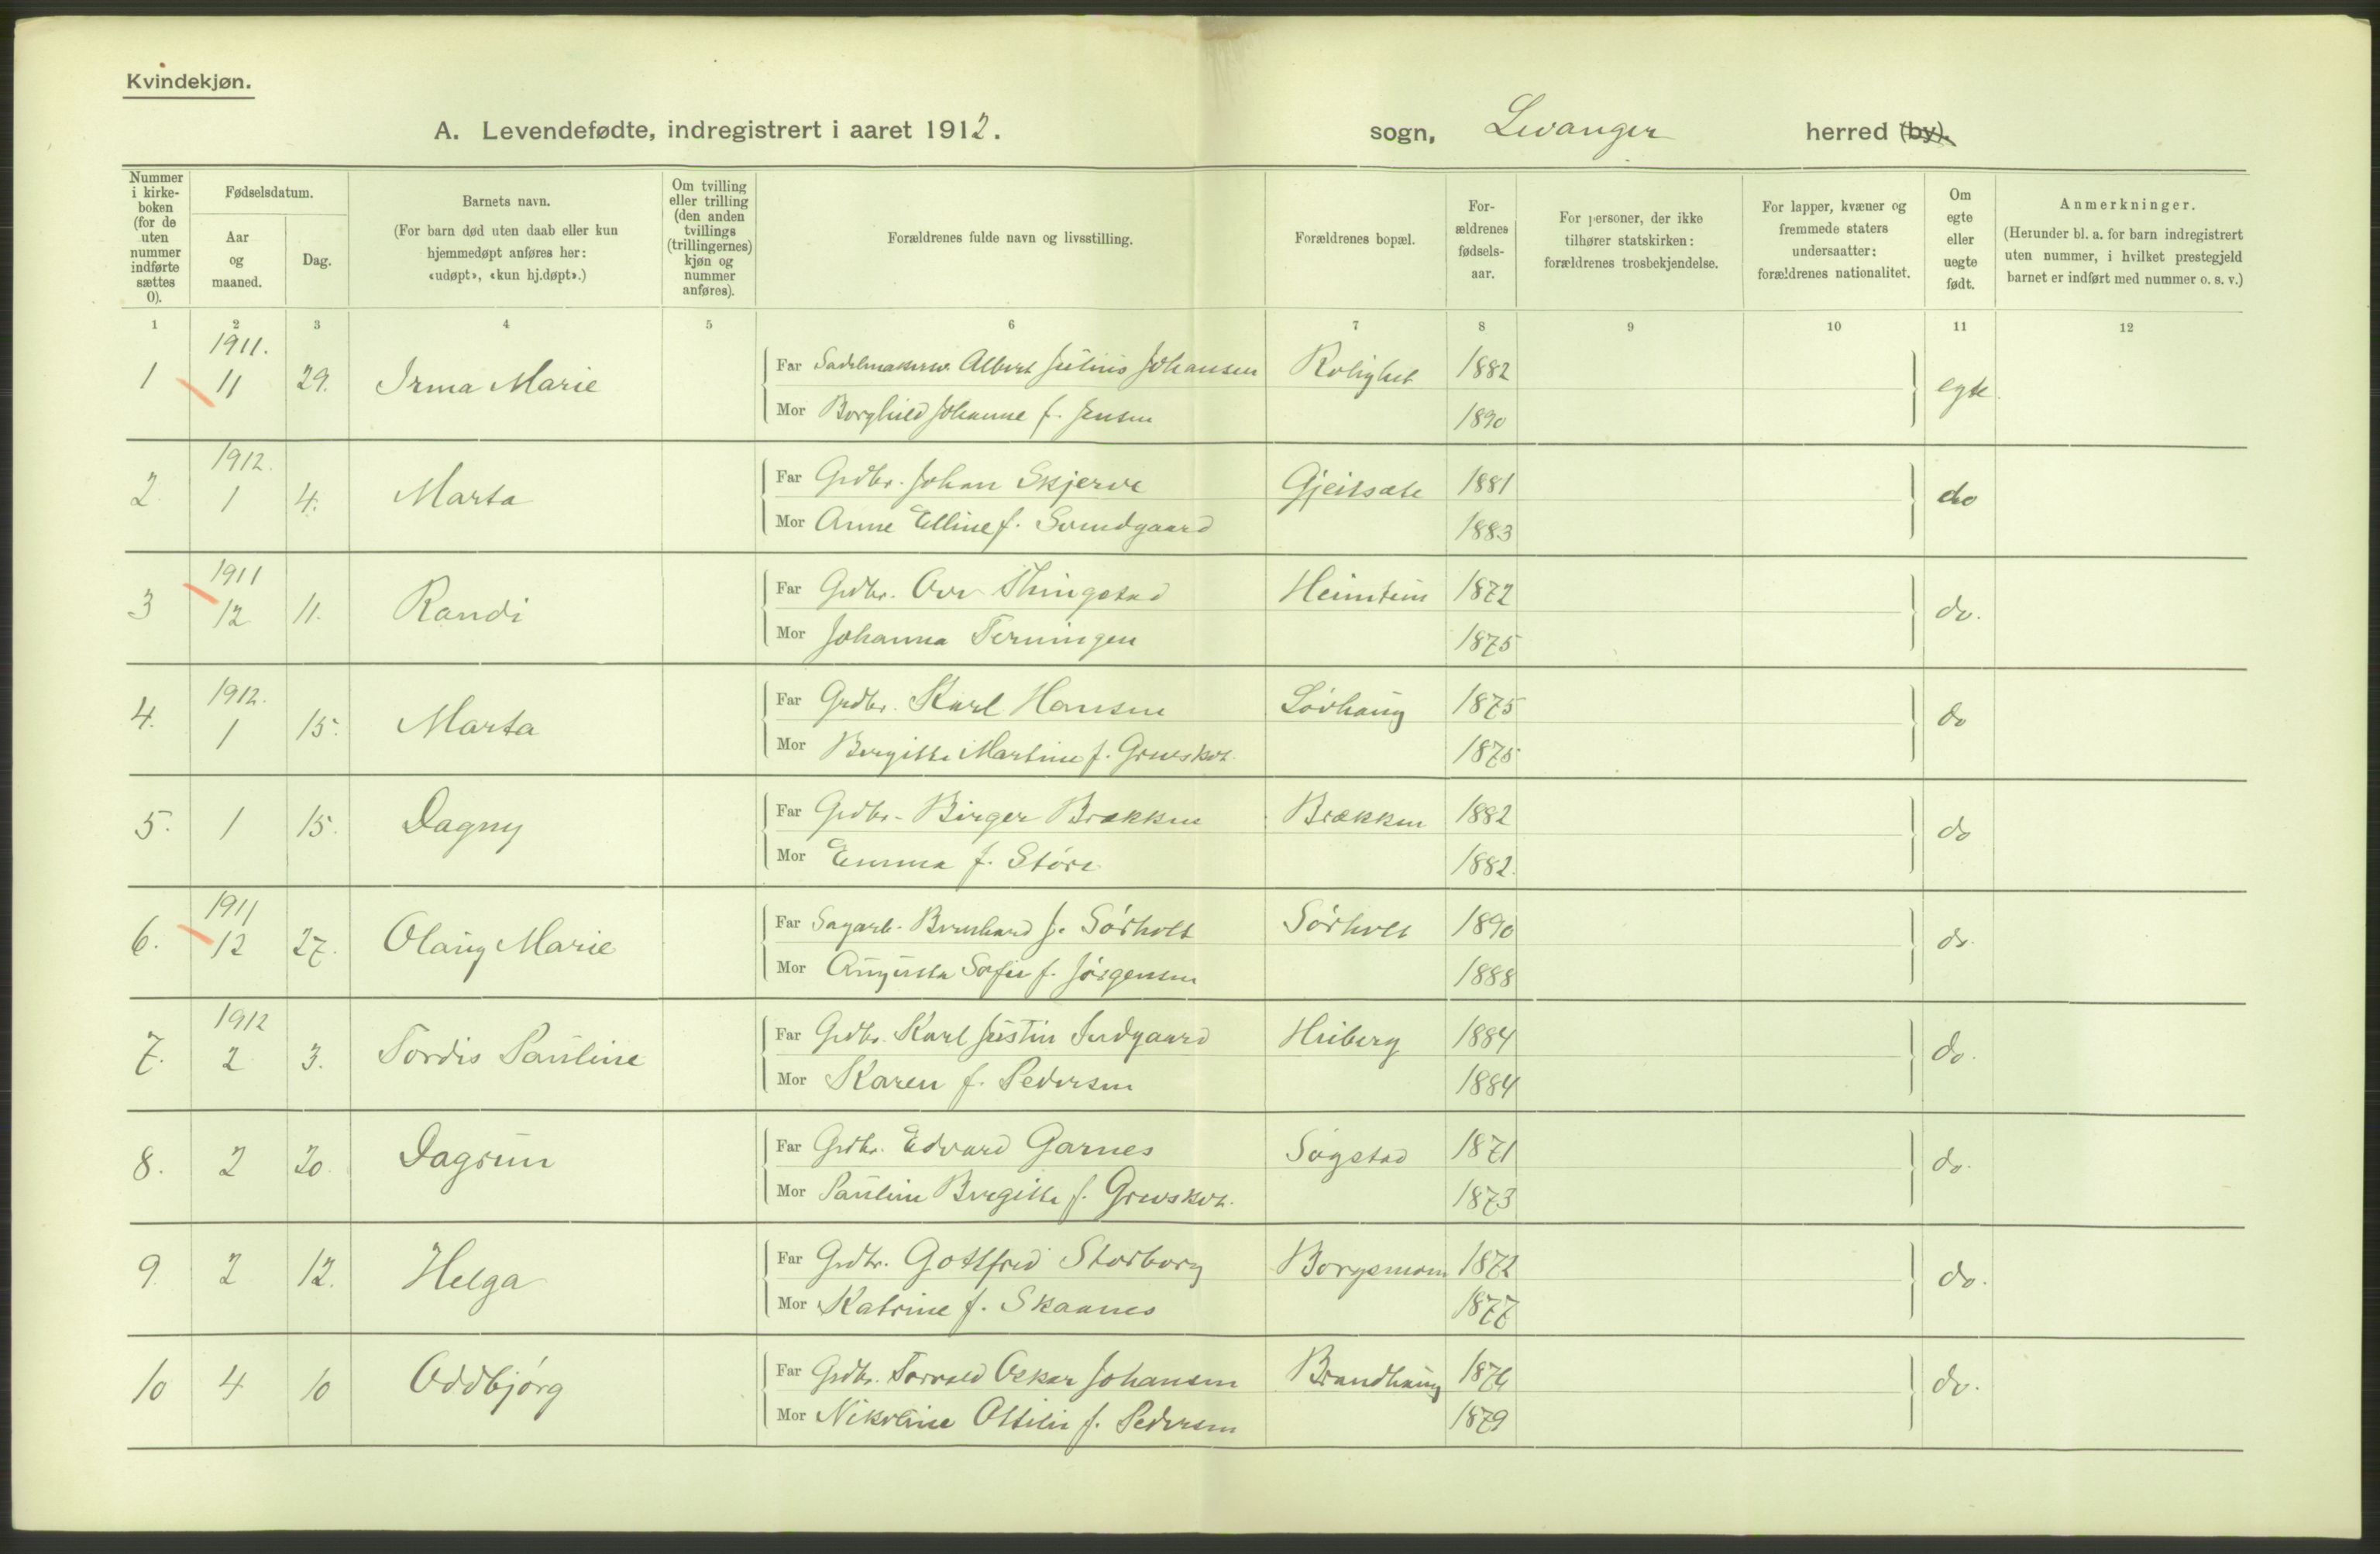 Kvindekjøn.
A. Levendefødte, indregistrert i aaret 1912. sogn, Levanger herred (by).
Nummer i kirkeboken (for de uten nummer indførte sættes 0).
Fødselsdatum.
Aar og maaned.
Dag.
Barnets navn.
(For barn død uten daab eller kun hjemmedøpt anføres her: «udøpt», «kun hj.døpt».)
Om tvilling eller trilling (den anden tvillings (trillingernes) kjøn og nummer anføres).
Forældrenes fulde navn og livsstilling.
Forældrenes bopæl.
Forældrenes fødselsaar.
For personer, der ikke tilhører statskirken: forældrenes trosbekjendelse.
For lapper, kvæner og fremmede staters undersaatter: forældrenes nationalitet.
Om egte eller uegte født.
Anmerkninger.
(Herunder bl. a. for barn indregistrert uten nummer, i hvilket prestegjeld barnet er indført med nummer o. s. v.)
1 2 3 4 5 6 7 8 9 10 11 12
1911.
1 11 29. Irma Marie Far Sadelmakersv. Albert Julius Johansen Rolighet 1882 egte
Mor Borghild Johanne f. Jensen 1890
1912.
2 1 4. Marta Far Grdbr. Johan Skjerve Gjeitsæte 1881 do
Mor Anne Elline f. Svendgaard 1883
1911
3 12 11. Randi Far Grdbr. Thingstad Heimtun 1872 do.
Mor Johanna Terningen 1875
1912.
4. 1 15. Marta Far Grdbr. Karl Hansen Løvhaug 1875 do
Mor Birgitte Martine f. 1875
5. 1 15. Dagny Far Grdbr. Birger Brækken Brækken 1882 do
Mor Emma f. Støre 1882.
1911
6. 12 27. Olaug Marie Far Sagarb. Bernhard J. Sørholt Sørholt 1890 do.
Mor Augusta Sofie f. Jørgensen 1888
1912
7. 2 3. Tordis Pauline Far Grdbr. Karl Justin Indgaard Heiberg 1884 do.
Mor Karen f. Pedersen 1884
8. 2 20. Dagrun Far Grdbr. Edvard Garnes Søgstad 1871 do.
Mor Pauline Birgitte f. 1873
9. 2 12. Helga Far Grdbr. Gottfred Storborg 1872 do.
Mor Katrine f. Skaanes 1877
10 4 10 Oddbjørg Far Grdbr. Torvald Oskar Johansen Brandhaug 1876 do.
Mor Nikoline Ottilie f. Pedersen 1879